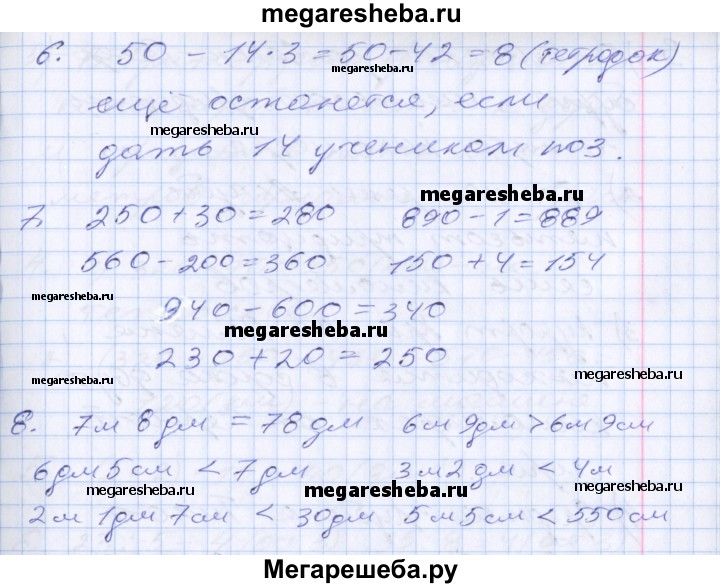 megaresheba.ru
6. 50 - 14·3 = 50 - 42 = 8 (тетрадок)
megaresheba.ru
ещё останется, если
megaresheba.ru
дать 14 ученикам по 3.
megaresheba.ru
7. 250 + 30 = 280 890 - 1 = 889
560 - 200 = 360 150 + 4 = 154
megaresheba.ru
940 - 600 = 340
megaresheba.ru
megaresheba.ru
230 + 20 = 250
megaresheba.ru
megaresheba.ru
8. 7м 8дм = 78дм 6м 9дм > 6м 9см
6дм 5см < 7дм 3м 2дм < 4м
megaresheba.ru megaresheba.ru megaresheba.ru
2м 1дм 7см < 30дм 5м 5см < 550см
Мегарешеба.ру